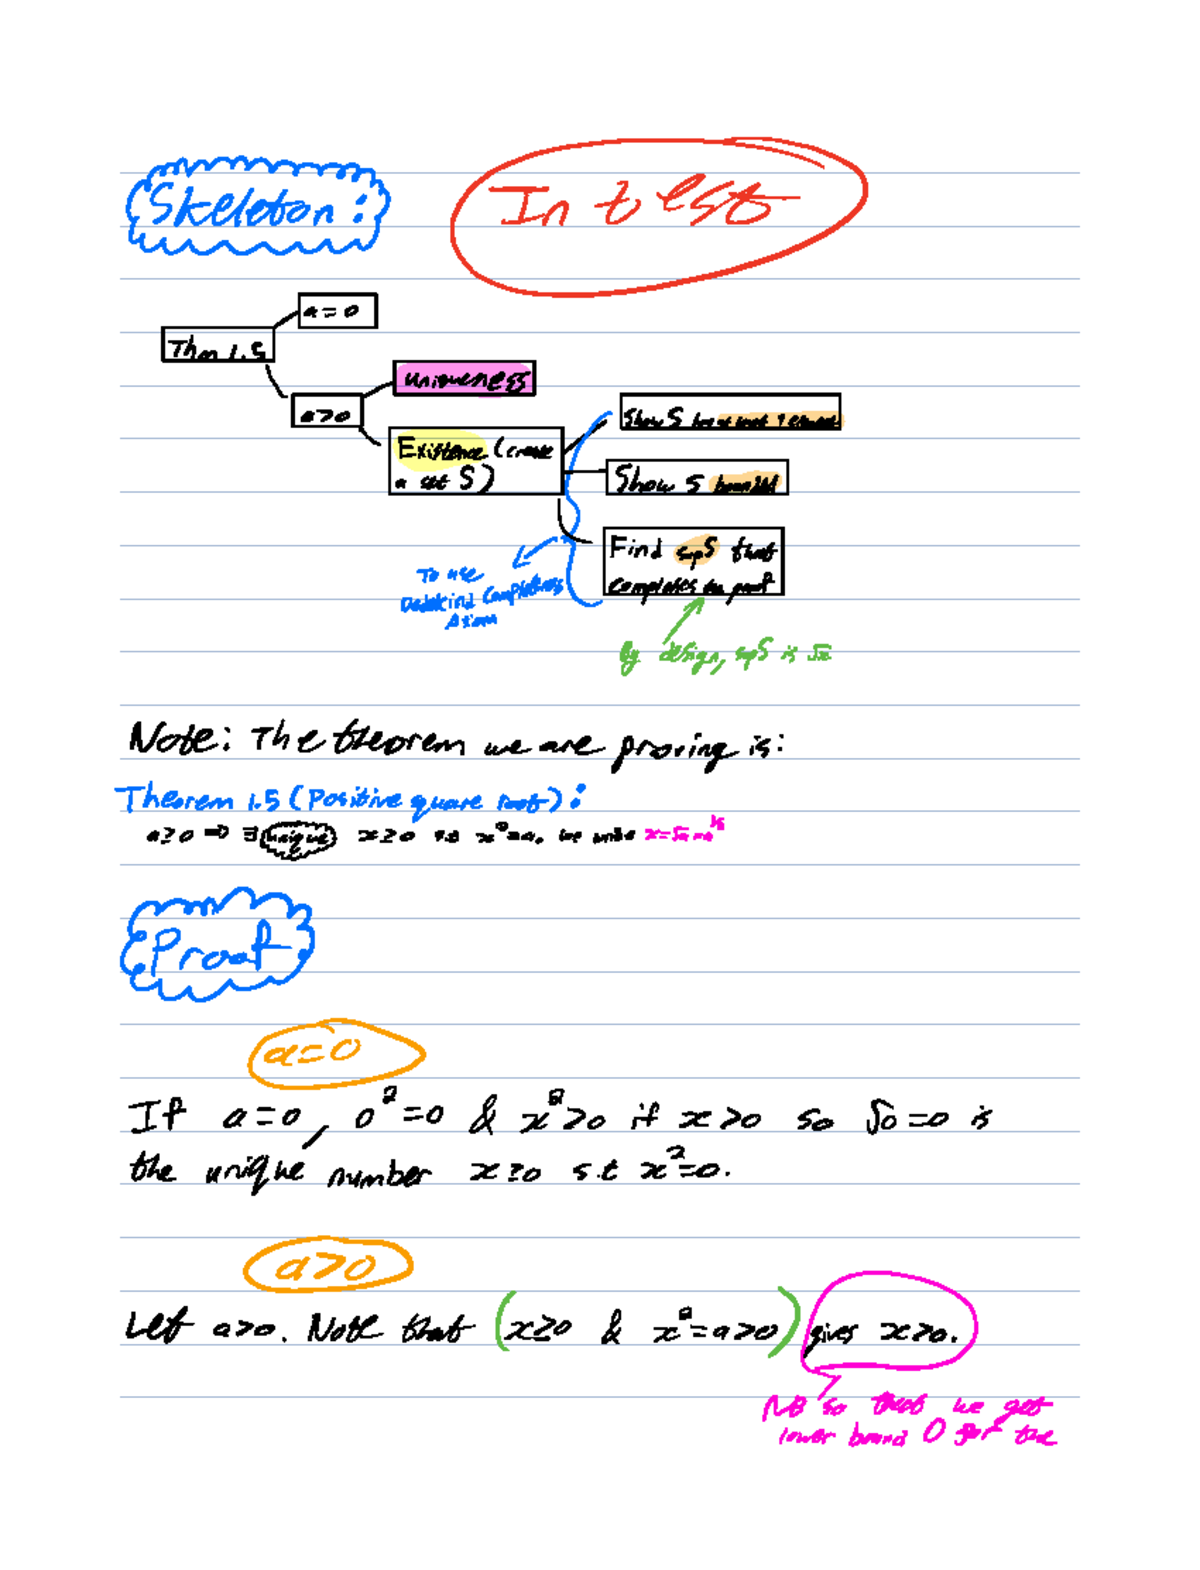 Skeleton:
In test
a=0
Thm 1.5
uniqueness
a>0
Show S has at least 1 element
Existence (create
a set S)
Show S bounded
Find supS that
completes the proof
To use
Dedekind Completeness
Axiom
By design, supS is √a
Note: The theorem we are proving is:
Theorem 1.5 (Positive square root):
a≥0 ⇒ ∃ unique x≥0 s.t x²=a. We write x=√a=a^½
Proof
a=0
If a=0, 0²=0 & x²>0 if x>0 so √0=0 is
the unique number x≥0 s.t x²=0.
a>0
Let a>0. Note that (x≥0 & x²=a>0) gives x>0.
NB so that we get
lower bound 0 for the